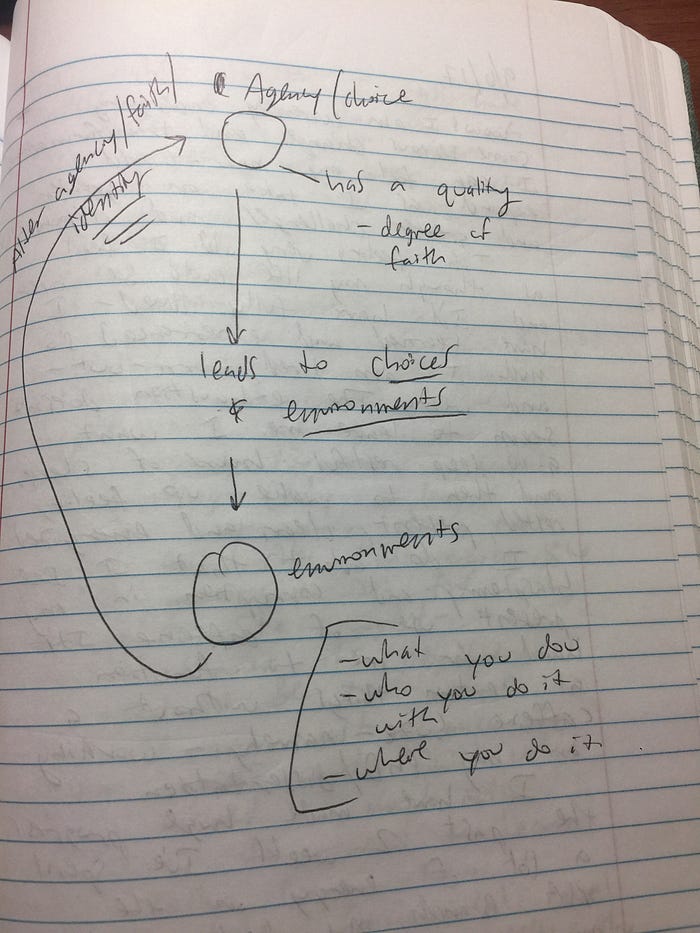 Agency/choice
Alter agency/faith/
identity
has a quality
- degree of
faith
leads to choices
& environments
environments
- what you dou
- who you do it
with
- where you do it